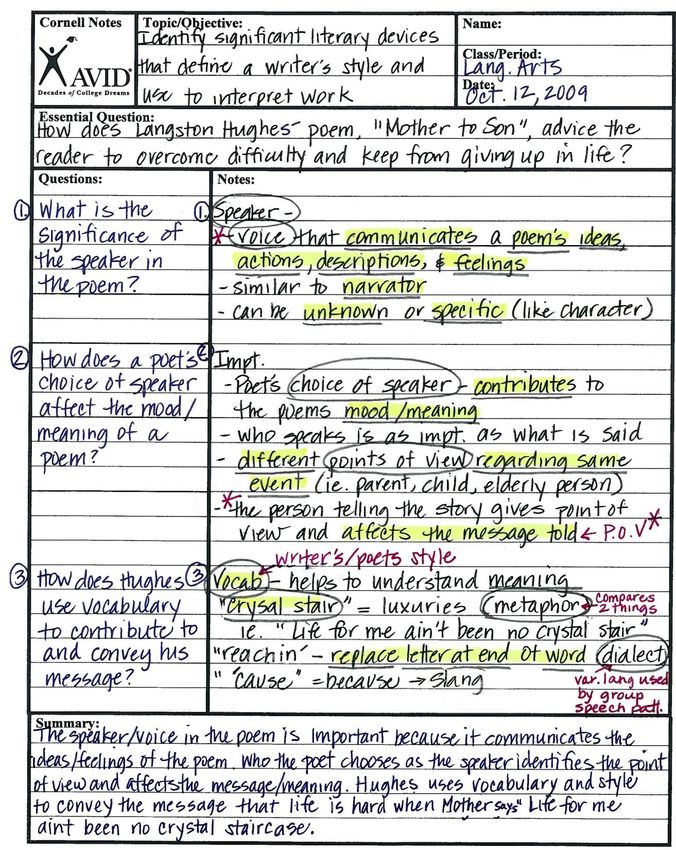 Cornell Notes
AVID®
Decades of College Dreams
Topic/Objective:
Identify significant literary devices
that define a writer's style and
use to interpret work
Name:
Class/Period:
Lang. Arts
Date:
Oct. 12, 2009
Essential Question:
How does Langston Hughes' poem, "Mother to Son", advice the
reader to overcome difficulty and keep from giving up in life?
Questions:
① What is the
significance of
the speaker in
the poem?
② How does a poet's
choice of speaker
affect the mood/
meaning of a
poem?
③ How does Hughes
use vocabulary
to contribute to
and convey his
message?
Notes:
① Speaker -
* - voice that communicates a poem's ideas,
actions, descriptions, & feelings
- similar to narrator
- can be unknown or specific (like character)
② Impt.
- Poet's choice of speaker - contributes to
the poems mood/meaning
- who speaks is as impt. as what is said
- different points of view regarding same
event (ie. parent, child, elderly person)
- * the person telling the story gives point of
view and affects the message told ← P.O.V *
writer's/poets style
③ Vocab - helps to understand meaning
"crysal stair" = luxuries metaphor ← compares
2 things
ie. "Life for me ain't been no crystal stair"
"reachin' - replace letter at end of word dialect
" 'cause" = because → slang
var. lang used
by group
speech patt.
Summary:
The speaker/voice in the poem is important because it communicates the
ideas/feelings of the poem. Who the poet chooses as the speaker identifies the point
of view and affects the message/meaning. Hughes uses vocabulary and style
to convey the message that life is hard when Mother says "Life for me
aint been no crystal staircase.